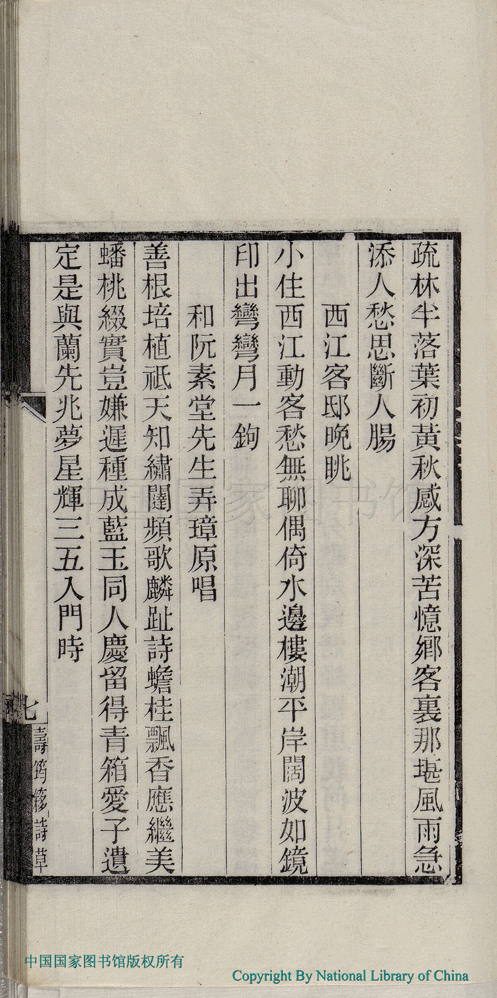 疏林半落葉初黃秋感方深苦憶鄉客裏那堪風雨急
添人愁思斷人腸
西江客邸晚眺
小住西江動客愁無聊偶倚水邊樓潮平岸闊波如鏡
印出彎彎月一鉤
和阮素堂先生弄璋原唱
善根培植祗天知繡闥頻歌麟趾詩蟾桂飄香應繼美
蟠桃綴實豈嫌遲種成藍玉同人慶留得青箱愛子遺
定是與蘭先兆夢星輝三五入門時
七
壽筠簃詩草
中国国家图书馆
中国国家图书馆版权所有
Copyright By National Library of China